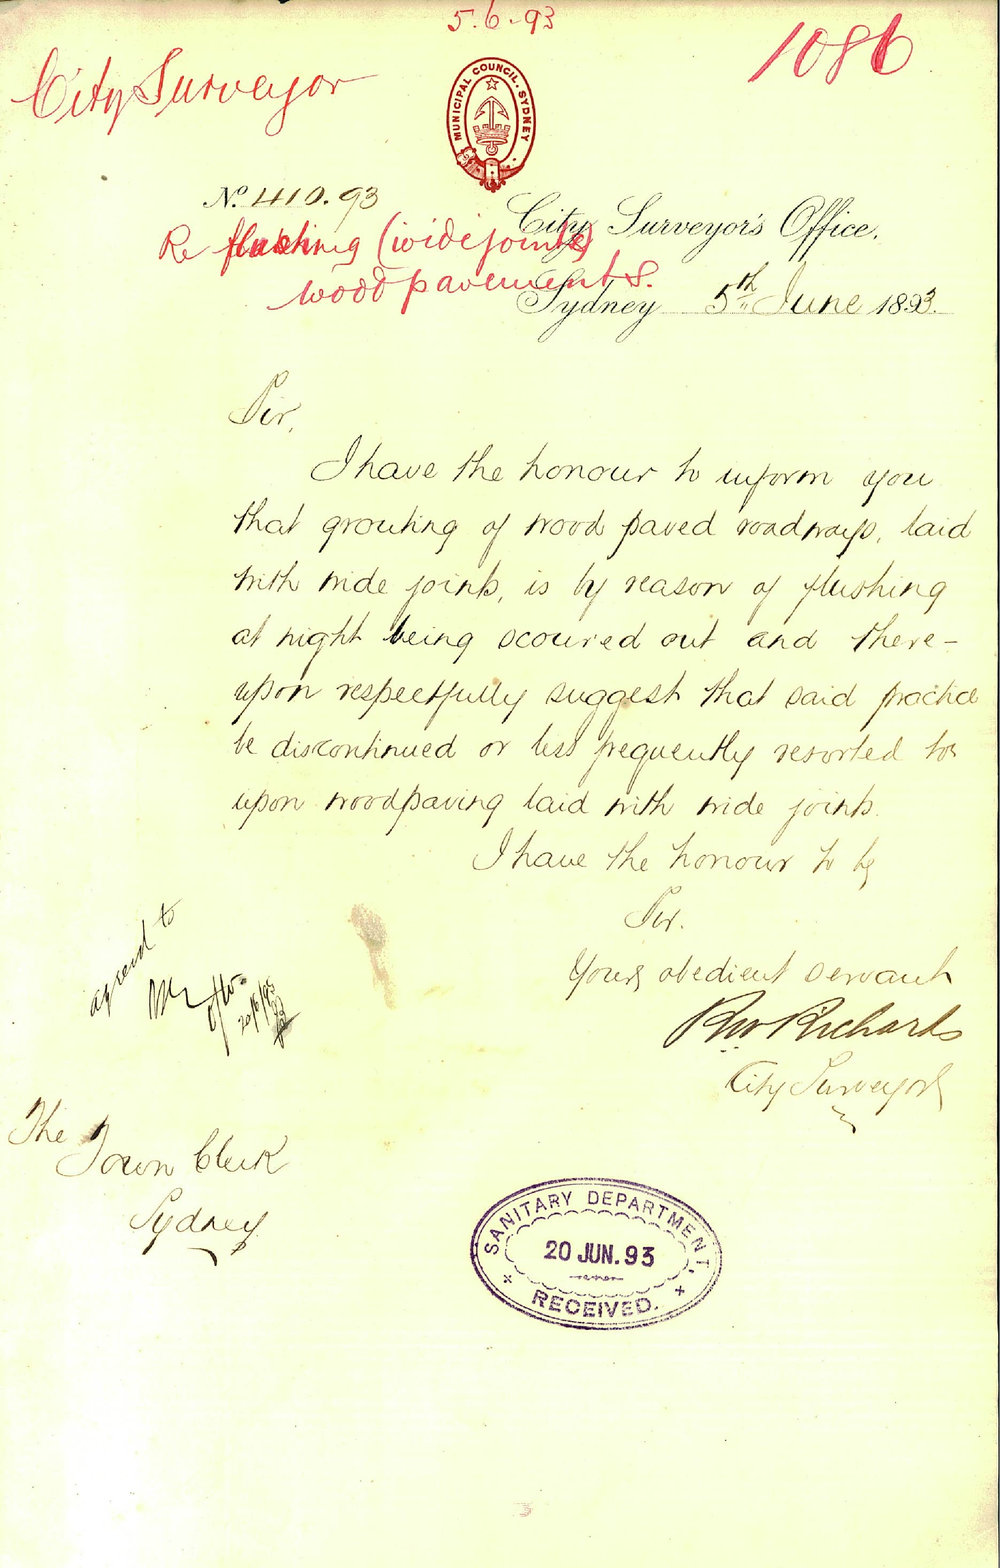 5.6.93
1086
City Surveyor
MUNICIPAL COUNCIL. SYDNEY
No. 410.93
City Surveyor's Office,
Re flushing (wide joints)
wood pavements.
Sydney 5th June 1893.
Sir,
I have the honour to inform you
that grouting of wood paved roadways, laid
with wide joints, is by reason of flushing
at night being scoured out and there-
upon respectfully suggest that said practice
be discontinued or less frequently resorted to
upon woodpaving laid with wide joints.
I have the honour to be
Sir.
Your obedient servant
Richards
City Surveyor
agreed to
20/6/93
The
Town Clerk
Sydney
SANITARY DEPARTMENT.
20 JUN. 93
RECEIVED.